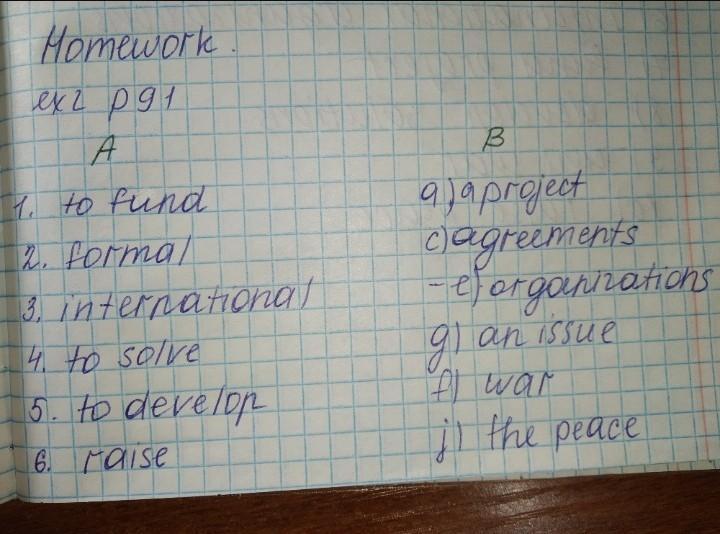 Homework.
ex2 p91
A B
1. to fund a) a project
2. formal c) agreements
3. international - e) organizations
4. to solve g) an issue
5. to develop f) war
6. raise j) the peace